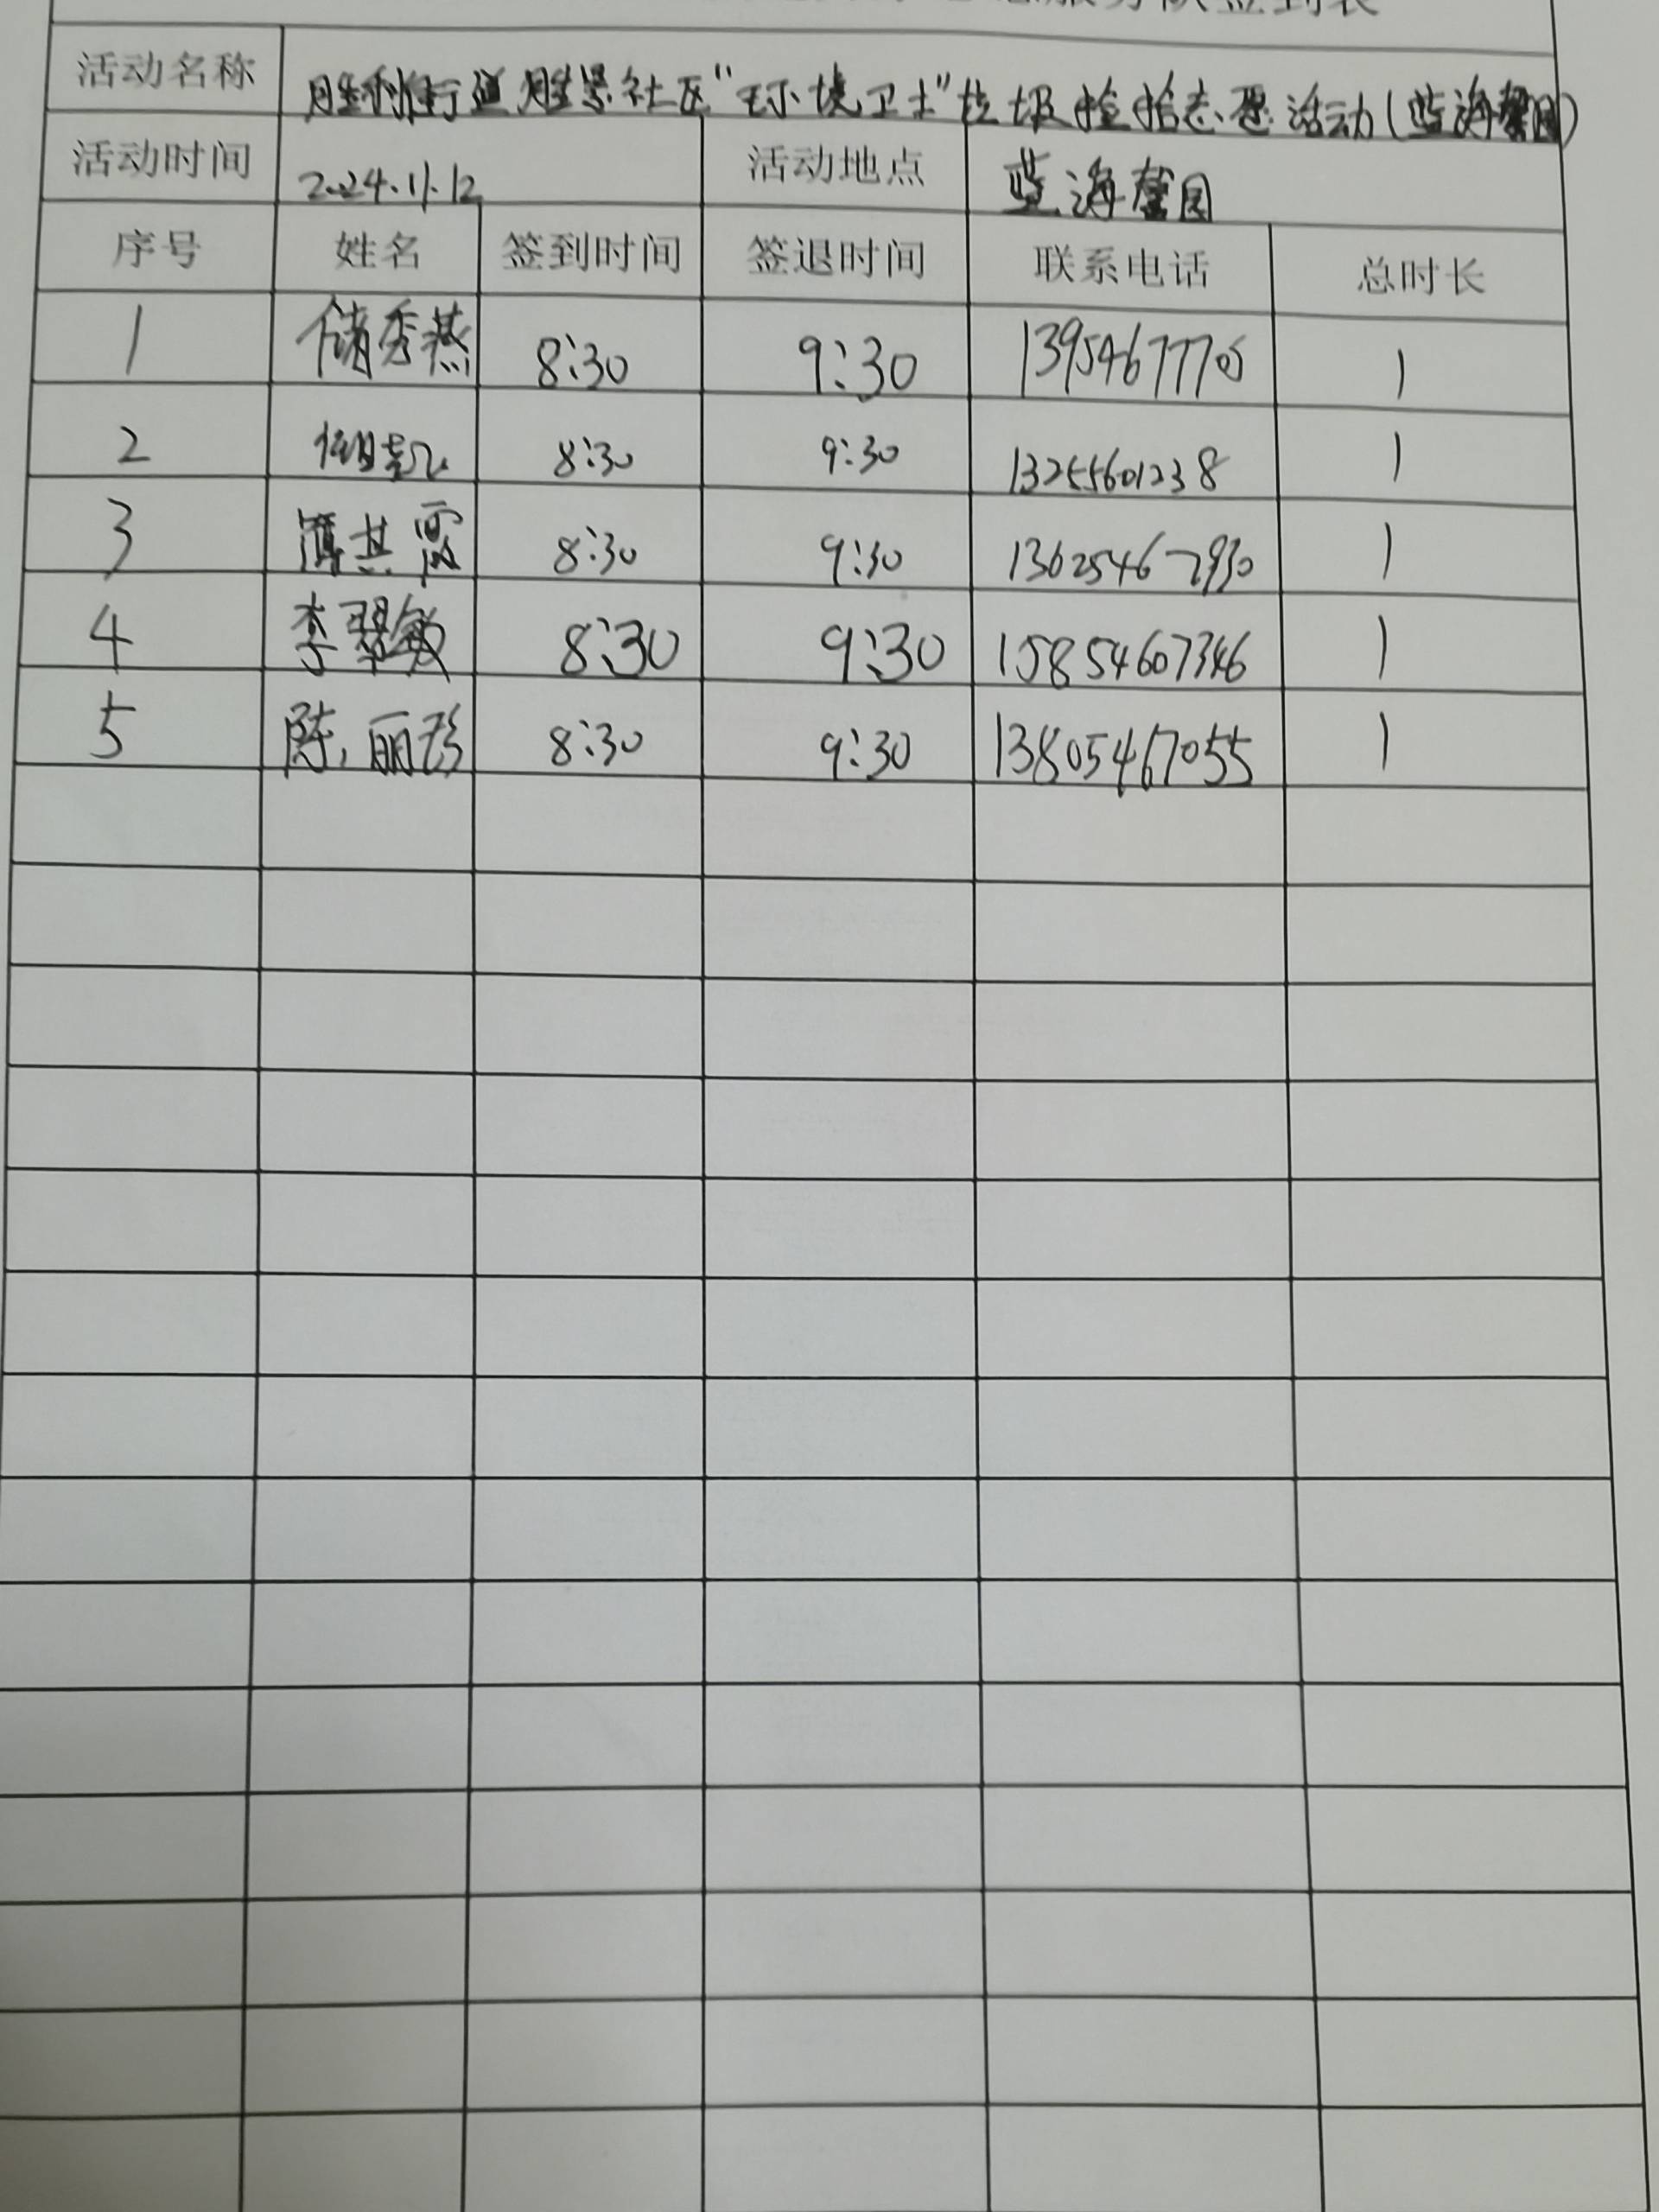 服务队签到表
活动名称 胜利街道胜景社区"环境卫士"垃圾捡拾志愿活动(蓝海馨园)
活动时间 2024.11.12 活动地点 蓝海馨园
序号 姓名 签到时间 签退时间 联系电话 总时长
1 储秀燕 8:30 9:30 13954677705 1
2 8:30 9:30 13255601238 1
3 薄其霞 8:30 9:30 13625467930 1
4 李翠敏 8:30 9:30 15854607346 1
5 陈丽珍 8:30 9:30 13805467055 1